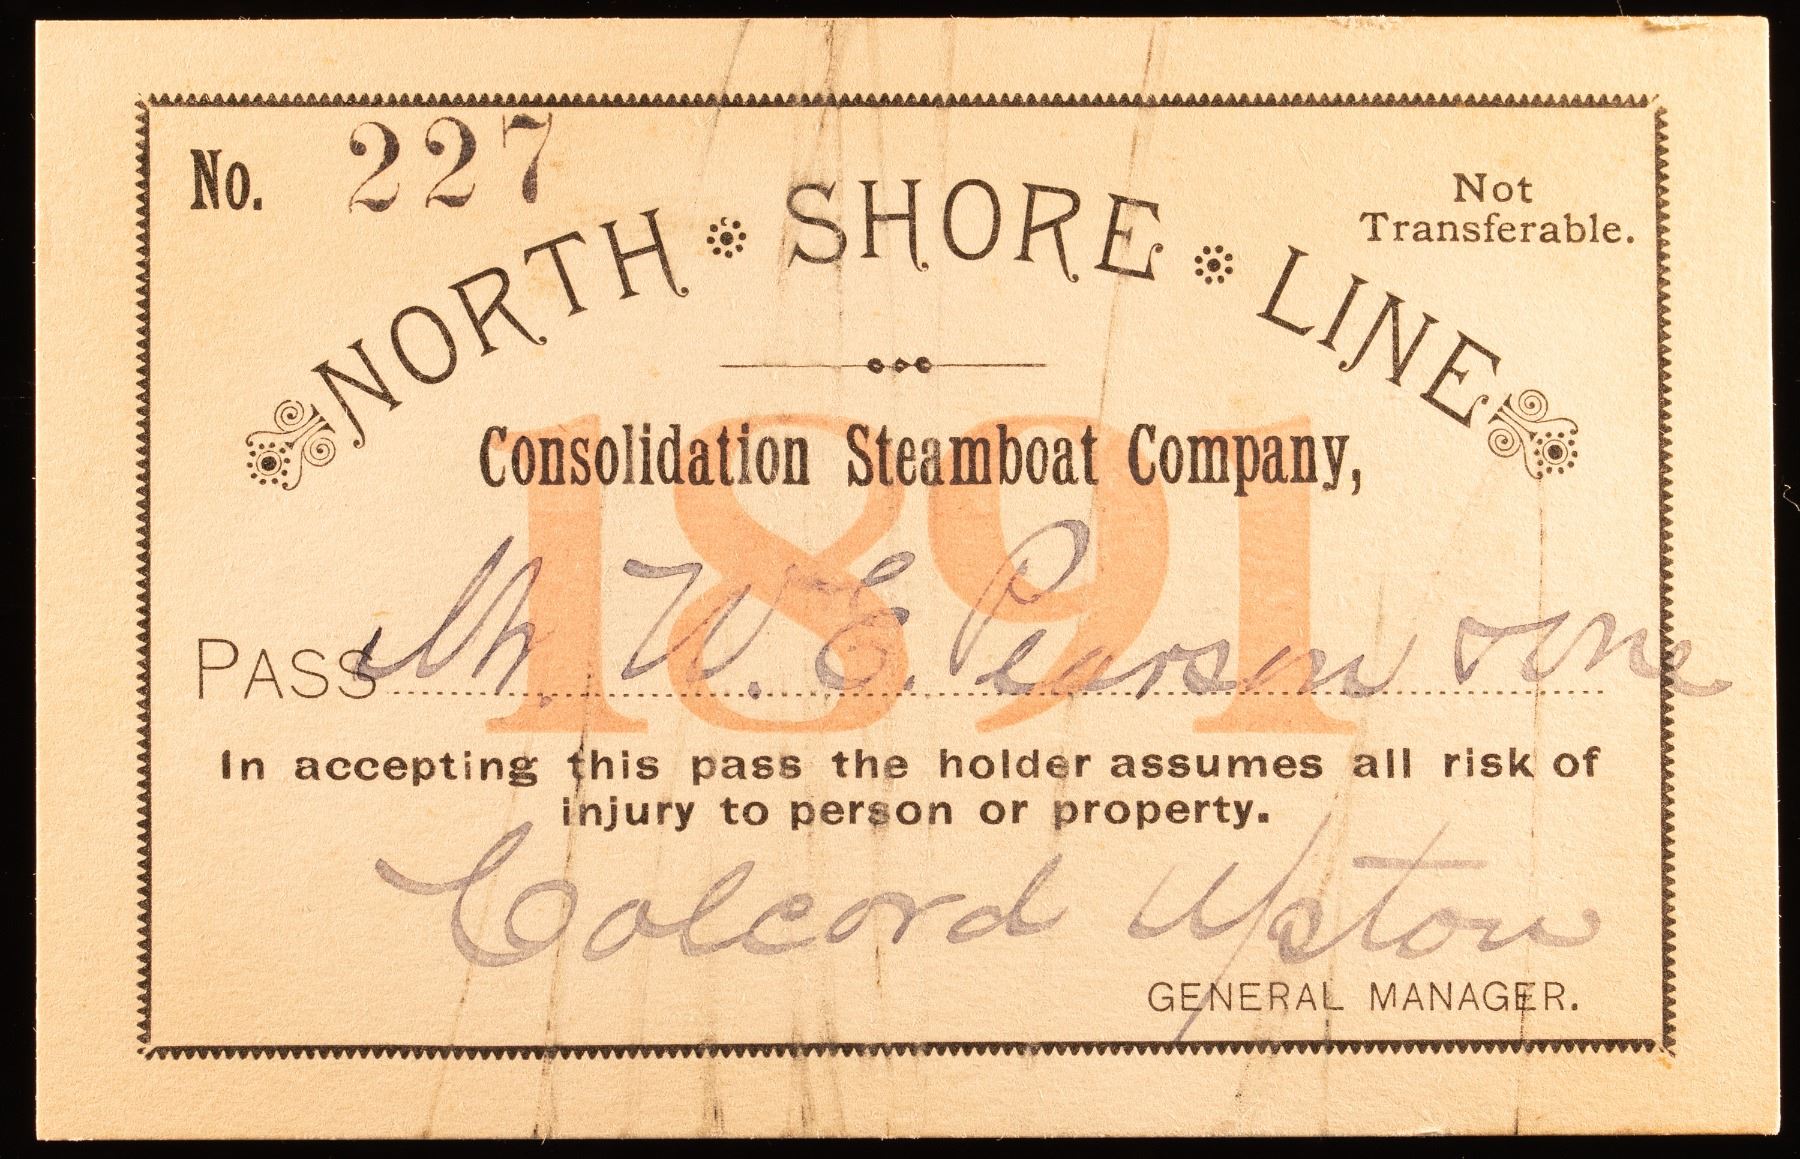 No. 227
Not
Transferable.
NORTH SHORE LINE
Consolidation Steamboat Company,
1891
PASS Mr. W. E. Pearson & One
In accepting this pass the holder assumes all risk of
injury to person or property.
Colcord Upton
GENERAL MANAGER.